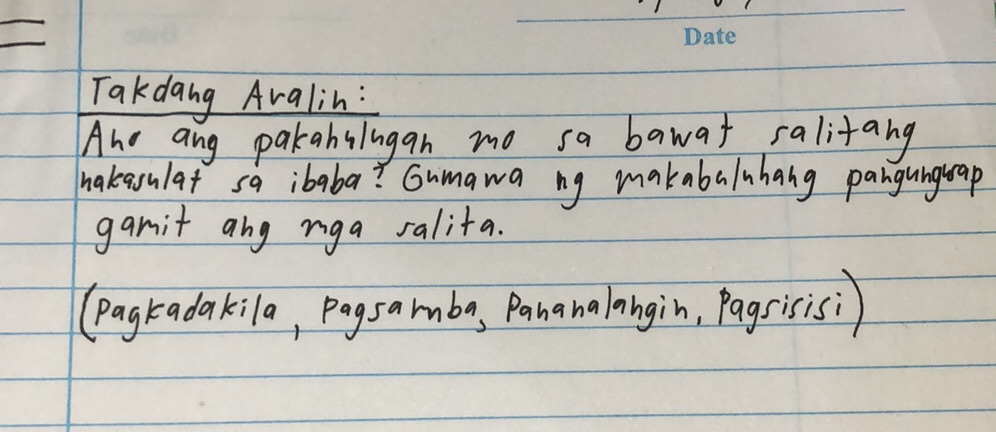 Date
Takdang Aralin:
Ano ang pakahulugan mo sa bawat salitang
nakasulat sa ibaba? Gumawa ng makabuluhang pangungusap
gamit ang mga salita.
(Pagkadakila, Pagsamba, Pananalangin, Pagsisisi)